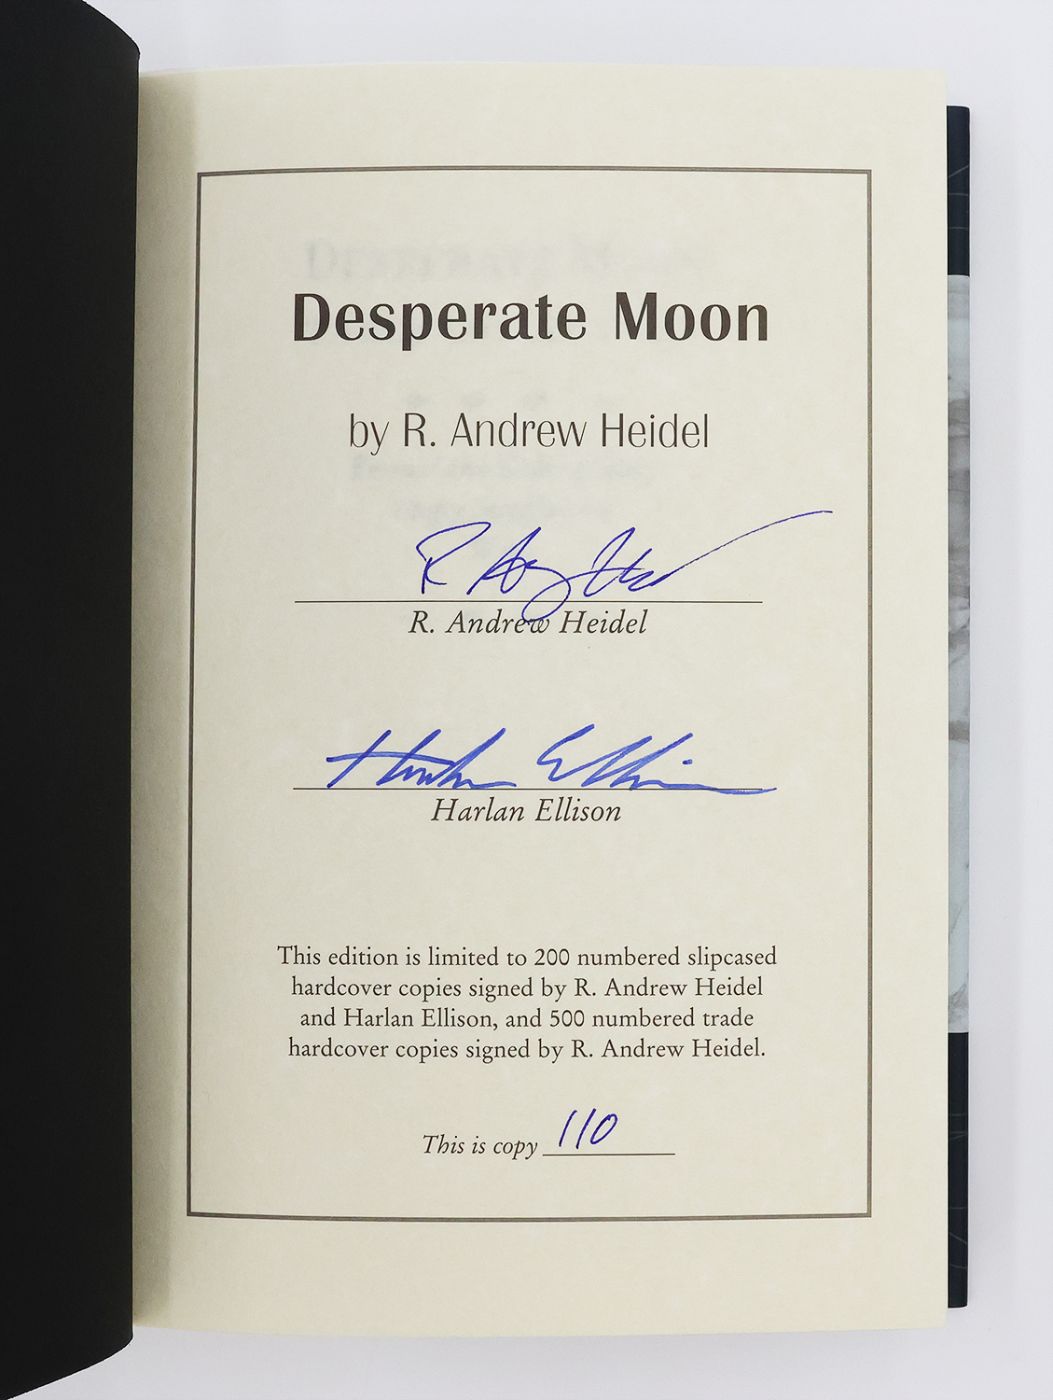 Desperate Moon
by R. Andrew Heidel
R. Andrew Heidel
Harlan Ellison
Harlan Ellison
This edition is limited to 200 numbered slipcased
hardcover copies signed by R. Andrew Heidel
and Harlan Ellison, and 500 numbered trade
hardcover copies signed by R. Andrew Heidel.
This is copy 110